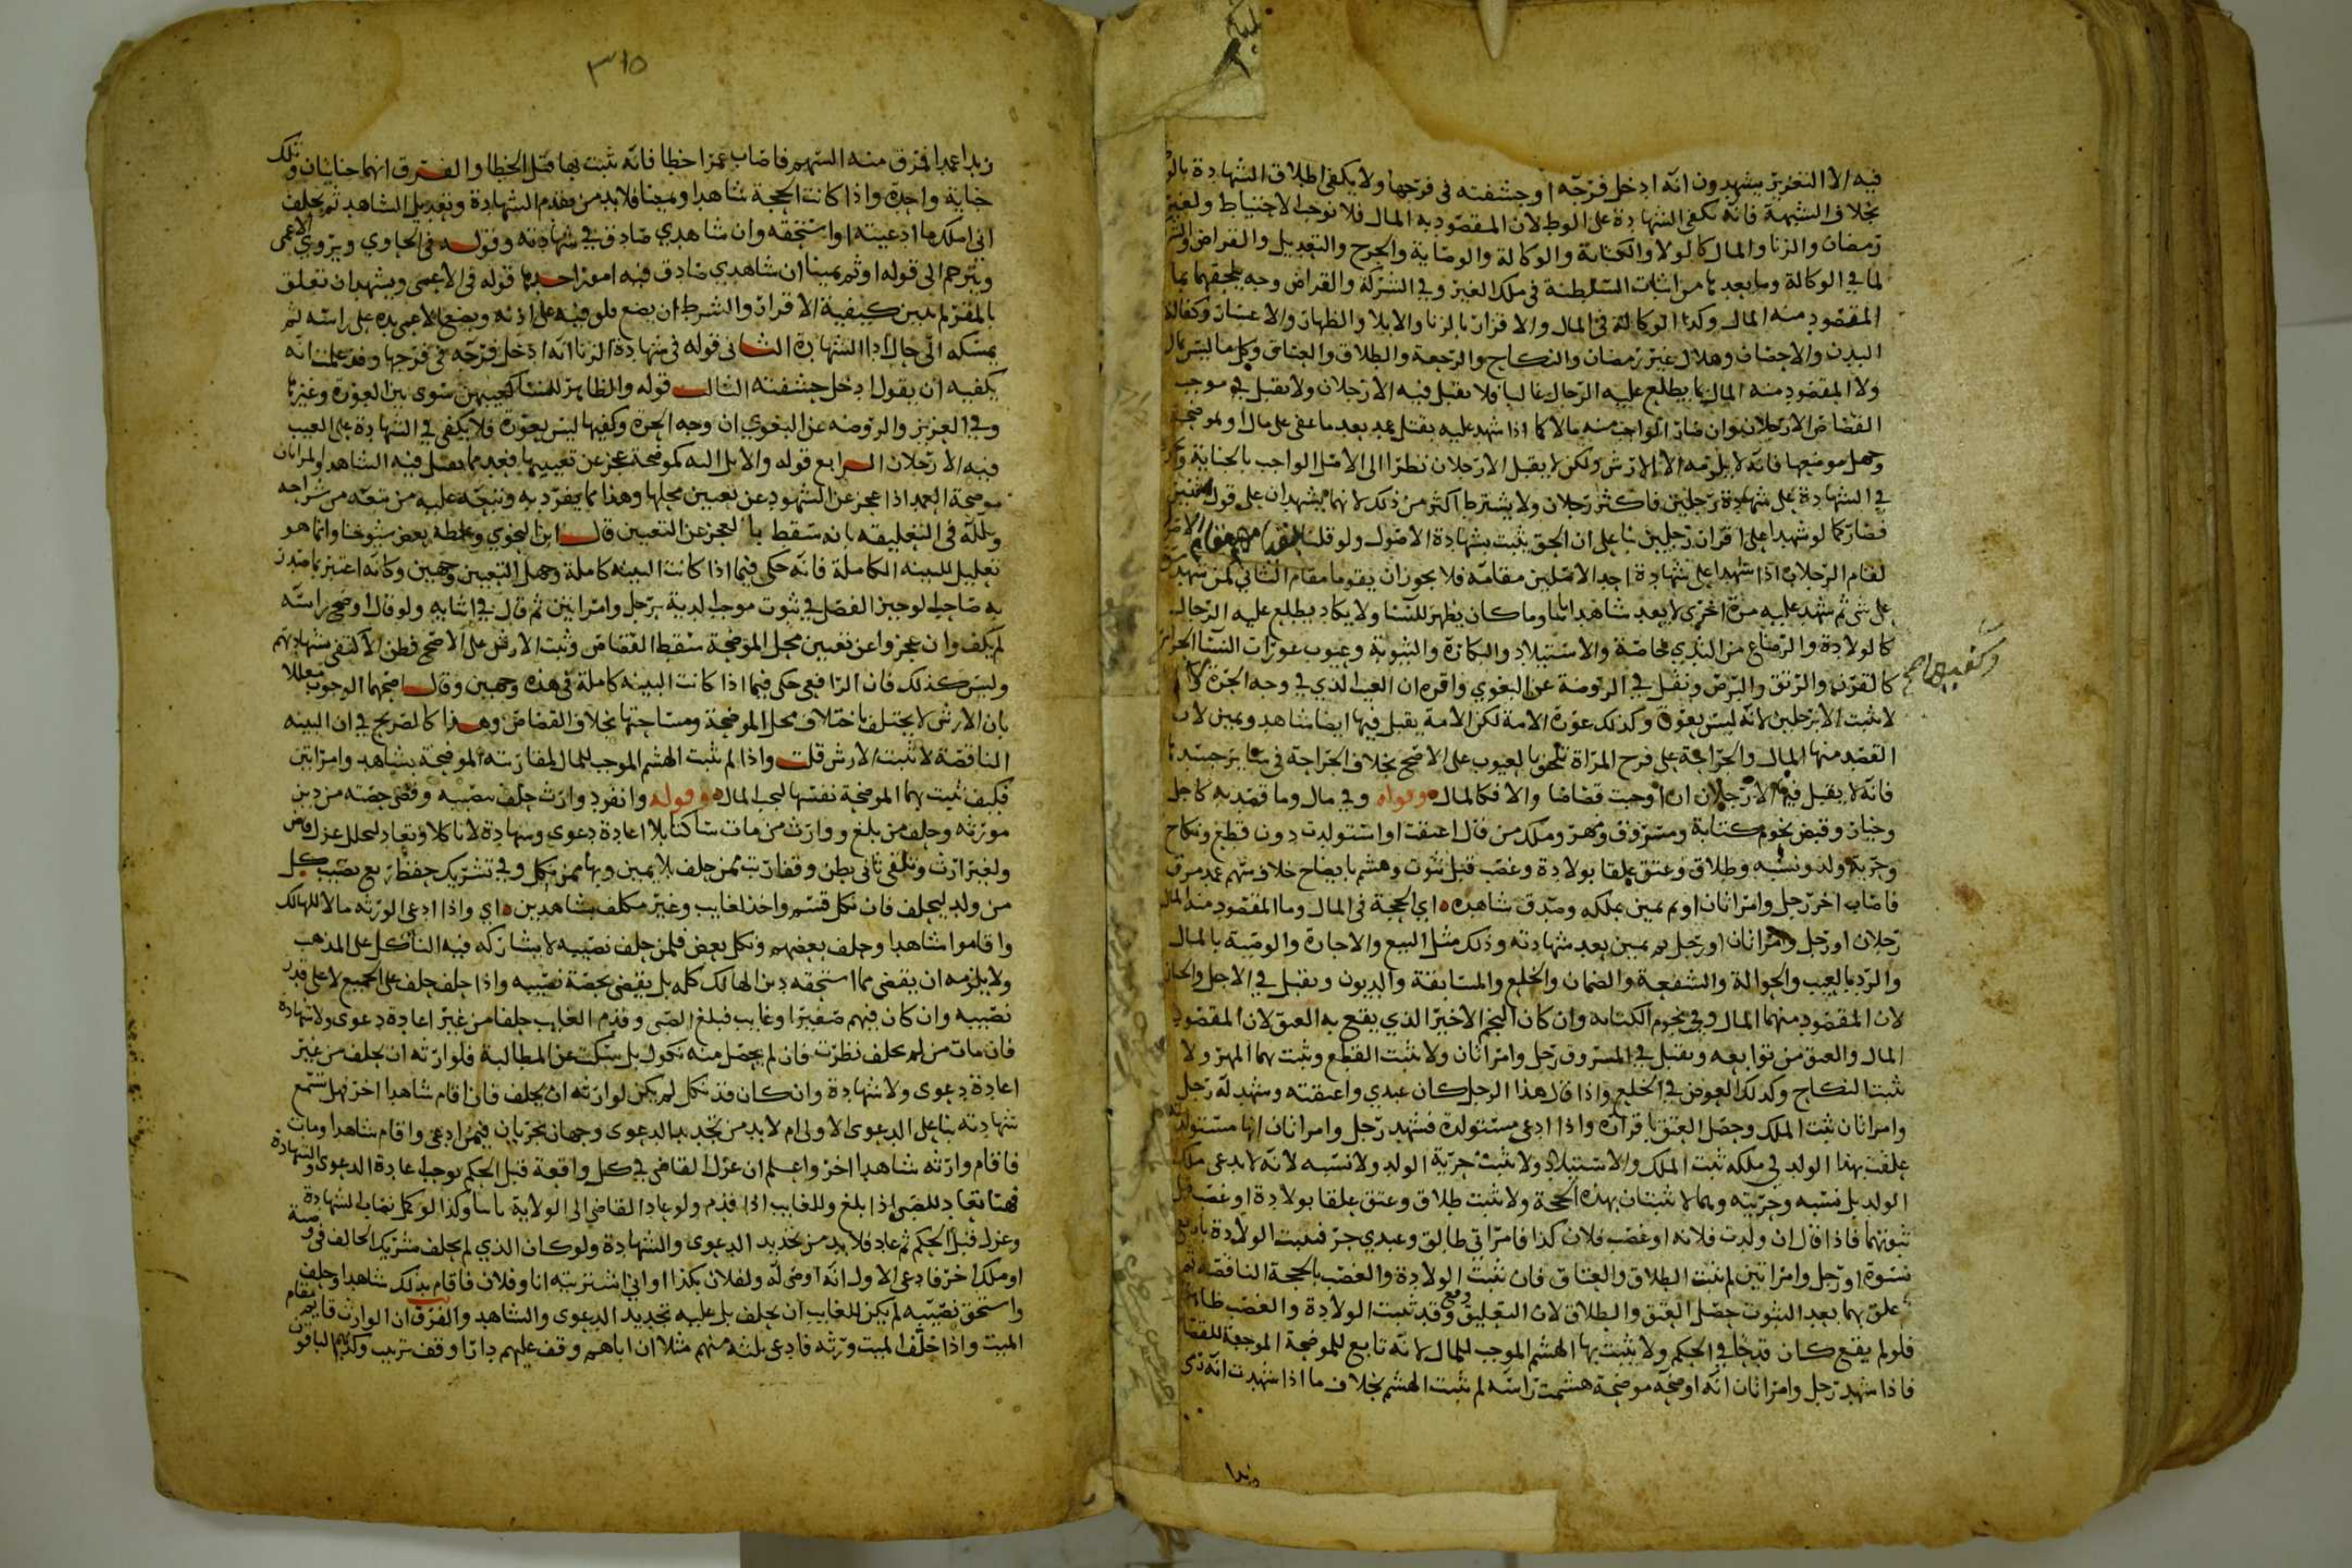 فيه الا التعزير يشهدون انه ادخل فرجه او حشفته في فرجها ولا يكفي اطلاق الشهادة بالو
بخلاف الشبهة فانه تكفي الشهادة على الوطي لان المقصود به المال فلا توجب الاحتياط ولغير
رمضان والزنا والمال كالولا والكتابة والوكالة والوصاية والجرح والتعديل والقراض والشر
لما في الوكالة وما بعدها من اثبات السلطنة في ملك الغير وفي الشركة والقراض وجه يلحقهما بما
المقصود منه المال وكذا الوكالة في المال والاقرار بالزنا والايلا والظهار والاعسار وكفالة
البدن والاحصان وهلال غير رمضان والنكاح والرجعة والطلاق والعتاق وكل ما ليس بمال
ولا المقصود منه المال مما يطلع عليه الرجال غالبا فلا يقبل فيه الا رجلان ولا يقبل في موجب
القصاص الا رجلان وان صار الواجب منه مالا كما اذا شهد عليه بقتل عمد بعد ما عفي على مال او لموضحة
وجهل موضعها فانه لا يلزمه الا الارش ولكن لا يقبل الا رجلان نظرا الى الاصل الواجب بالجناية
في الشهادة على شهادة رجلين فاكثر رجلان ولا يشترط اكثر من ذلك لانهما يشهدان على قول اثنين
فصار كما لو شهدا على اقرار رجلين بنا على ان الحق يثبت بشهادة الاصول ولو قلنا
لقام الرجلان اذا شهدا على شهادة احد الاصلين مقامه فلا يجوز ان يقوما مقام الثاني كمن شهد
على شي ثم شهد عليه مرة اخرى لا يعد شاهدا ثانيا وما كان يظهر للنسا ولا يكاد يطلع عليه الرجال
كالولادة والرضاع من الثدي خاصة والاستيلاد والبكارة والثيوبة وعيوب عورات النسا الحراير
كالقرن والرتق والبرص ونقل في الروضة عن البغوي واقره ان العيب الذي في وجه الحرة
لا يثبت الا برجلين لانه ليس بعورة وكذلك عورة الامة لكن الامة يقبل فيها ايضا شاهد ويمين لان
القصد منها المال والجراحة على فرج المراة تلحق بالعيوب على الاصح بخلاف الجراحة في ساير جسدها
فانه لا يقبل فيها الا رجلان ان اوجبت قصاصا والا فكالمال وقوله وفي مال وما قصد به كاجل
وخيار وقبض نجوم كتابة ومسروق ومهر وملك من قال اعتقت او استولدت دون قطع ونكاح
وحرية ولد ونسبه وطلاق وعتق علقا بولادة وغصب قبل ثبوت وهشم بايضاح خلاف سهم عمد مرق
فاصاب اخر رجل وامراتان او ثم يمين بملكه وصدق شاهده اي الحجة في المال وما المقصود منه المال
رجلان او رجل وامراتان او رجل ثم يمين بعد شهادته وذلك مثل البيع والاجارة والوصية بالمال
والرد بالعيب والحوالة والشفعة والضمان والخلع والمسابقة والديون وتقبل في الاجل والخيار
لان المقصود منهما المال وفي نجوم الكتابه وان كان النجم الاخير الذي يقع به العتق لان المقصود
المال والعتق من توابعه وتقبل في المسروق رجل وامراتان ولا يثبت القطع ويثبت بهما المهر ولا
يثبت النكاح وكذلك العوض في الخلع واذا قال هذا الرجل كان عبدي واعتقته وشهد له رجل
وامراتان ثبت الملك وحصل العتق باقراره واذا ادعى مستولدة فشهد رجل وامراتان انها مستولدته
علقت بهذا الولد في ملكه ثبت الملك والاستيلاد ولا يثبت حرية الولد ولا نسبه لانه لا يدعي ملك
الولد بل نسبه وحريته وهما لا يثبتان بهذه الحجة ولا يثبت طلاق وعتق علقا بولادة او غصب قبل
ثبوتهما فاذا قال ان ولدت فلانة او غصب فلان كذا فامراتي طالق وعبدي حر فثبت الولادة باربع
نسوة او رجل وامراتين لم يثبت الطلاق والعتاق فان ثبتت الولادة والغصب بالحجة الناقصة ثم
علق بهما بعد الثبوت حصل العتق والطلاق لان التعليق وقع وقد ثبت الولادة والغصب ظاهرا
فلو لم يقع كان قدحا في الحكم ولا يثبت بها الهشم الموجب للمال لانه تابع للموضحة الموجبة للقصا
فاذا شهد رجل وامراتان انه اوضحه موضحة هشمت راسه لم يثبت الهشم بخلاف ما اذا شهدت انه رمى
زيدا
٣١٥
زيدا عمدا فمرق منه السهم فاصاب عمرا خطا فانه يثبت بها قتل الخطا والفرق انهما جنايتان وتلك
جناية واحدة واذا كانت الحجة شاهدا ويمينا فلابد من تقدم الشهادة وتعديل الشاهد ثم يحلف
اني املك ما ادعيته او استحقه وان شاهدي صادق في شهادته وقوله في الحاوي ويروي الاعمى
ويترجم الى قوله او ثم يمينا ان شاهدي صادق فيه امور احدها قوله في الاعمى ويشهد ان تعلق
بالمقر لم يبين كيفية الاقرار والشرط ان يضع المقر فيه على اذنه ويضع الاعمى يده على راسه ثم
يمسكه الى حال ادا الشهادة الثاني قوله في شهادة الزنا انه ادخل فرجه في فرجها وقد علمت انه
يكفيه ان يقول ادخل حشفته الثالث قوله والظاهر للنسا كعيبهن سوى بين العورة وغيرها
وفي العزيز والروضه عن البغوي ان وجه الحرة وكفيها ليس بعورة فلا يكفي في الشهادة على العيب
فيه الا رجلان الرابع قوله والابل اليه كموضحة عجز عن تعيينها فعدها مما يقبل فيه الشاهد والمراتان
موضحة العمد اذا عجز عن الشهود عن تعيين محلها وهذا مما يفرد به وتبعه عليه من تبعه من شراحه
وعلله في التعليقه بانه سقط بالعجز عن التعيين قال ابن النحوي وغلطه بعض شيوخنا وانما هو
تعليل للبينه الكاملة فانه حكى فيما اذا كانت البينه كاملة وجهل التعيين وجهين وكانه اغتر بما صدر
به صاحب الوجيز الفصل في ثبوت موجب الدية برجل وامراتين ثم قال في اثنايه ولو قال اوضح راسه
لم يكف وان عجزوا عن تعيين محل الموضحة سقط القصاص وثبت الارش على الاصح فظن الاكتفى بشهادتهم
وليس كذلك فان الرافعي حكى فيما اذا كانت البينه كاملة في هذه وجهين وقال اصحهما الوجوب معللا
بان الارش لا يختلف باختلاف محل الموضحة ومساحتها بخلاف القصاص وهذا كالصريح في ان البينه
الناقصة لا تثبت الارش قلت واذا لم يثبت الهشم الموجب للمال لمقارنته الموضحة بشاهد وامراتين
فكيف يثبت بهما الموضحة نفسها ليجب المال وقوله وانفرد وارث حلف بنصيبه وقضى حصته من دين
مورثه وحلف من بلغ ووارث من مات ساكتا بلا اعادة دعوى وشهادة لا ناكلا وتعاد لتخلل عزل قاض
ولغير ارث وتلقى ثاني بطن وقفا رتب ممن حلف بلا يمين وبها ممن نكل وفي تشريك حفظ ربع نصيب كل
من ولد ليحلف فان نكل قسم واخذ لغايب وغير مكلف بشاهدين اي واذا ادعى الورثه مالا للهالك
واقاموا شاهدا وحلف بعضهم ونكل بعض فلمن حلف نصيبه لا يشاركه فيه الناكل على المذهب
ولا يلزمه ان يقضي مما استحقه دين الهالك كله بل يقضي بحصة نصيبه واذا حلف حلف على الجميع لا على قدر
نصيبه وان كان فيهم صغيرا وغايب فبلغ الصبي وقدم الغايب حلفا من غير اعادة دعوى ولا شهادة
فان مات من لم يحلف نظرت فان لم يحصل منه نكول بل سكت عن المطالبة فلوارثه ان يحلف من غير
اعادة دعوى ولا شهادة وان كان قد نكل لم يكن لوارثه ان يحلف فان اقام شاهدا اخر فهل تسمع
شهادته بنا على الدعوى الاولى ام لابد من تجديد الدعوى وجهان يجريان فيمن ادعى واقام شاهدا ومات
فاقام وارثه شاهدا اخر واعلم ان عزل القاضي في كل واقعة قبل الحكم يوجب اعادة الدعوى والشهادة
فهنا تعاد للصبي اذا بلغ وللغايب اذا قدم ولو عاد القاضي الى الولاية ثانيا وكذا لو كمل نصاب الشهادة
وعزل قبل الحكم ثم عاد فلابد من تجديد الدعوى والشهادة ولو كان الذي لم يحلف شريك الحالف في وصية
او ملك اخر فادعى الاول انه اوصى له ولفلان بكذا او اني اشتريته انا وفلان فاقام بذلك شاهدا وحلف
واستحق نصيبه لم يكن للغايب ان يحلف بل عليه تجديد الدعوى والشاهد والفرق ان الوارث قايم مقام
الميت واذا خلف الميت ورثه فادعى ثلثه منهم مثلا ان اباهم وقف عليهم دارا وقف ترتيب وكذبهم الباقون